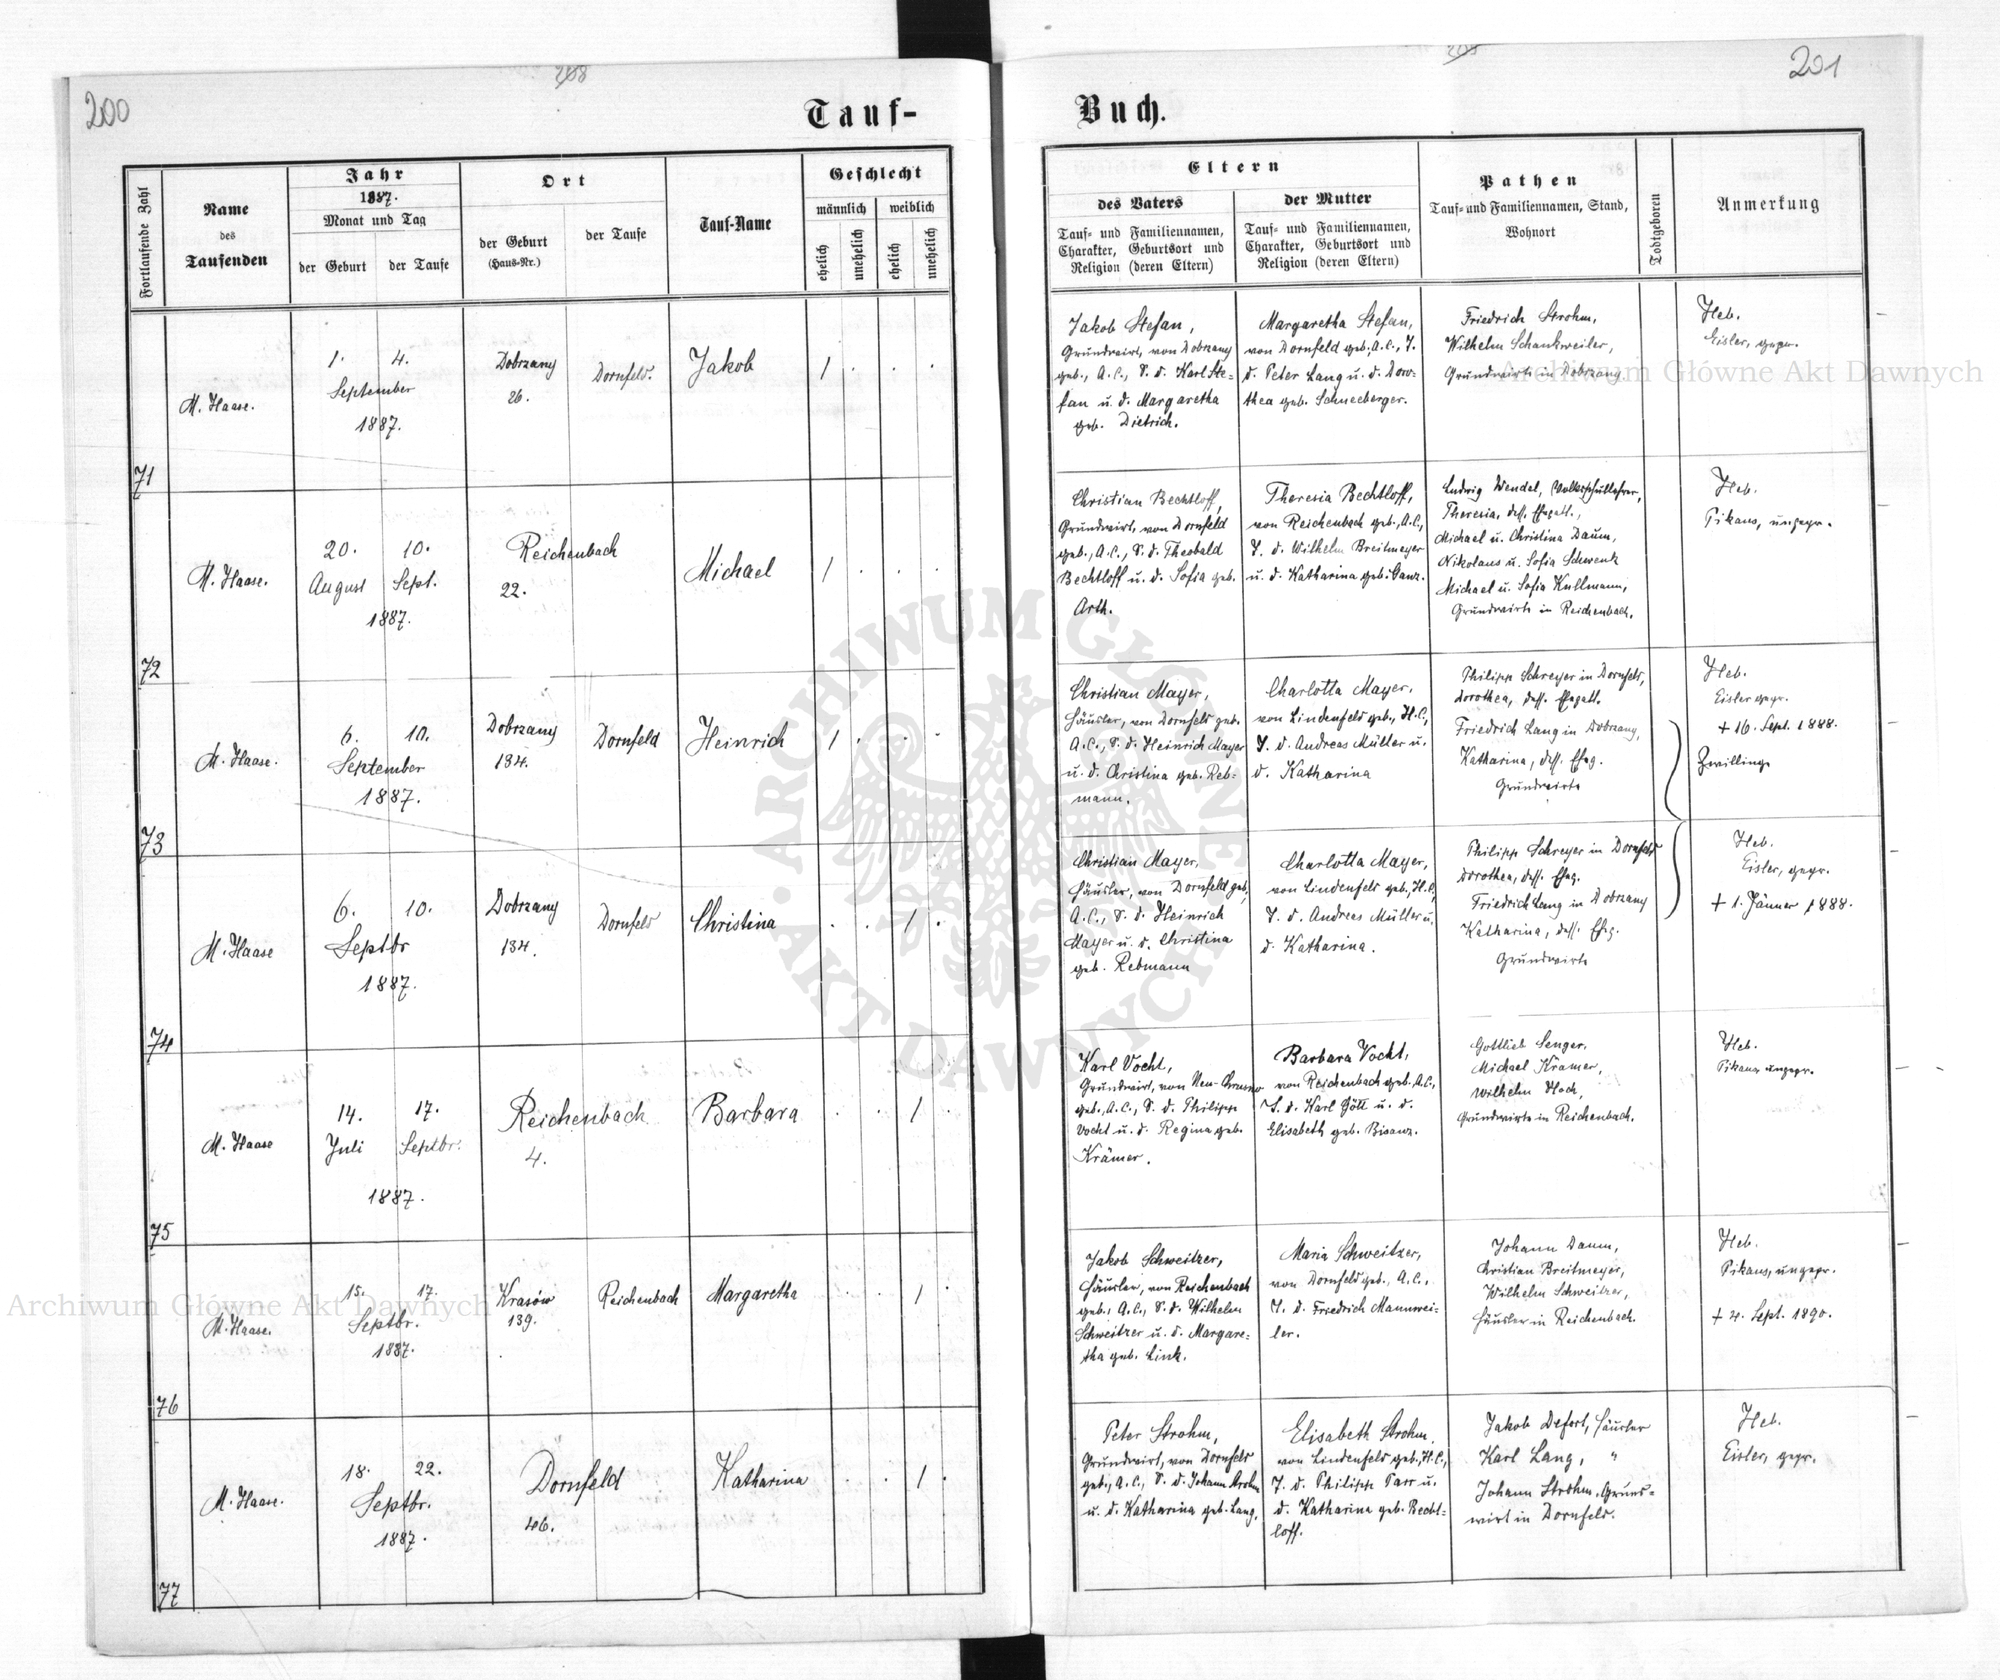 200
208
Tauf-
Fortlaufende Zahl
Name
des
Taufenden
Jahr
1887.
Monat und Tag
der Geburt
der Taufe
Ort
der Geburt
(Haus-Nr.)
der Taufe
Tauf-Name
Geschlecht
männlich
weiblich
ehelich
unehelich
ehelich
unehelich
71
M. Haase.
1. 4.
September
1887.
Dobrzany
26.
Dornfeld.
Jakob
1 . . .
72
M. Haase.
20. 10.
August Sept.
1887.
Reichenbach
22.
Michael
1 . . .
73
M. Haase.
6. 10.
September
1887.
Dobrzany
134.
Dornfeld
Heinrich
1 . . .
74
M. Haase
6. 10.
Septbr
1887.
Dobrzany
134.
Dornfeld
Christina
. . 1 .
75
M. Haase
14. 17.
Juli Septbr.
1887.
Reichenbach
4.
Barbara
. . 1 .
76
M. Haase.
15. 17.
Septbr.
1887.
Krasów
139.
Reichenbach
Margaretha
. . 1 .
77
M. Haase.
18. 22.
Septbr.
1887.
Dornfeld
46.
Katharina
. . 1 .
201
Buch.
Eltern
des Vaters
Tauf- und Familiennamen,
Charakter, Geburtsort und
Religion (deren Eltern)
der Mutter
Tauf- und Familiennamen,
Charakter, Geburtsort und
Religion (deren Eltern)
Pathen
Tauf- und Familiennamen, Stand,
Wohnort
Todtgeboren
Anmerkung
Jakob Stefan,
Grundwirt, von Dobrzany
geb., A. C., S. d. Karl Ste=
fan u. d. Margaretha
geb. Dietrich.
Margaretha Stefan,
von Dornfeld geb., A. C., T.
d. Peter Lang u. d. Doro=
thea geb. Schneeberger.
Friedrich Strohm,
Wilhelm Schankweiler,
Grundwirte in Dobrzany
Heb.
Eisler, gepr.
Christian Bechtloff,
Grundwirt, von Dornfeld
geb., A. C., S. d. Theobald
Bechtloff u. d. Sofia geb.
Arth.
Theresia Bechtloff,
von Reichenbach geb., A. C.,
T. d. Wilhelm Breitmeyer
u. d. Katharina geb. Ganz.
Ludwig Wendel, Volksschullehrer,
Theresia, dess. Ehegatt.,
Michael u. Christina Daum,
Nikolaus u. Sofia Schwenk
Michael u. Sofia Kullmann,
Grundwirte in Reichenbach.
Heb.
Pikaus, ungepr.
Christian Mayer,
Häusler, von Dornfeld geb.
A. C., S. d. Heinrich Mayer
u. d. Christina geb. Reb=
mann.
Charlotta Mayer,
von Lindenfeld geb., H. C.,
T. d. Andreas Müller u.
d. Katharina
Philipp Schreyer in Dornfeld,
Dorothea, dess. Ehegatt.
Friedrich Lang in Dobrzany,
Katharina, dess. Eheg.
Grundwirte
Heb.
Eisler gepr.
+ 16. Sept. 1888.
Zwillinge
Christian Mayer,
Häusler, von Dornfeld geb.,
A. C., S. d. Heinrich
Mayer u. d. Christina
geb. Rebmann
Charlotta Mayer,
von Lindenfeld geb., H. C.,
T. d. Andreas Müller u.
d. Katharina.
Philipp Schreyer in Dornfeld
Dorothea, dess. Eheg.
Friedrich Lang in Dobrzany
Katharina, dess. Eheg.
Grundwirte
Heb.
Eisler, gepr.
+ 1. Jänner 1888.
Karl Vocht,
Grundwirt, von Neu-Chrusno
geb., A. C., S. d. Philipp
Vocht u. d. Regina geb.
Krämer.
Barbara Vocht,
von Reichenbach geb. A. C.,
T. d. Karl Göll u. d.
Elisabeth geb. Bisanz.
Gottlieb Senger,
Michael Kramer,
Wilhelm Hoch,
Grundwirte in Reichenbach.
Heb.
Pikaus ungepr.
Jakob Schweitzer,
Häusler, von Reichenbach
geb., A. C., S. d. Wilhelm
Schweitzer u. d. Margare=
tha geb. Link.
Maria Schweitzer,
von Dornfeld geb., A. C.,
T. d. Friedrich Mannwei=
ler.
Johann Daum,
Christian Breitmeyer,
Wilhelm Schweitzer,
Häusler in Reichenbach.
Heb.
Pikaus, ungepr.
+ 4. Sept. 1890.
Peter Strohm,
Grundwirt, von Dornfeld
geb., A. C., S. d. Johann Strohm
u. d. Katharina geb. Lang.
Elisabeth Strohm,
von Lindenfeld geb., H. C.,
T. d. Philipp Parr u.
d. Katharina geb. Becht=
loff.
Jakob Defort, Häusler
Karl Lang, "
Johann Strohm, Grund=
wirt in Dornfeld.
Heb.
Eisler, gepr.
Archiwum Główne Akt Dawnych
Archiwum Główne Akt Dawnych
ARCHIWUM GŁÓWNE AKT DAWNYCH